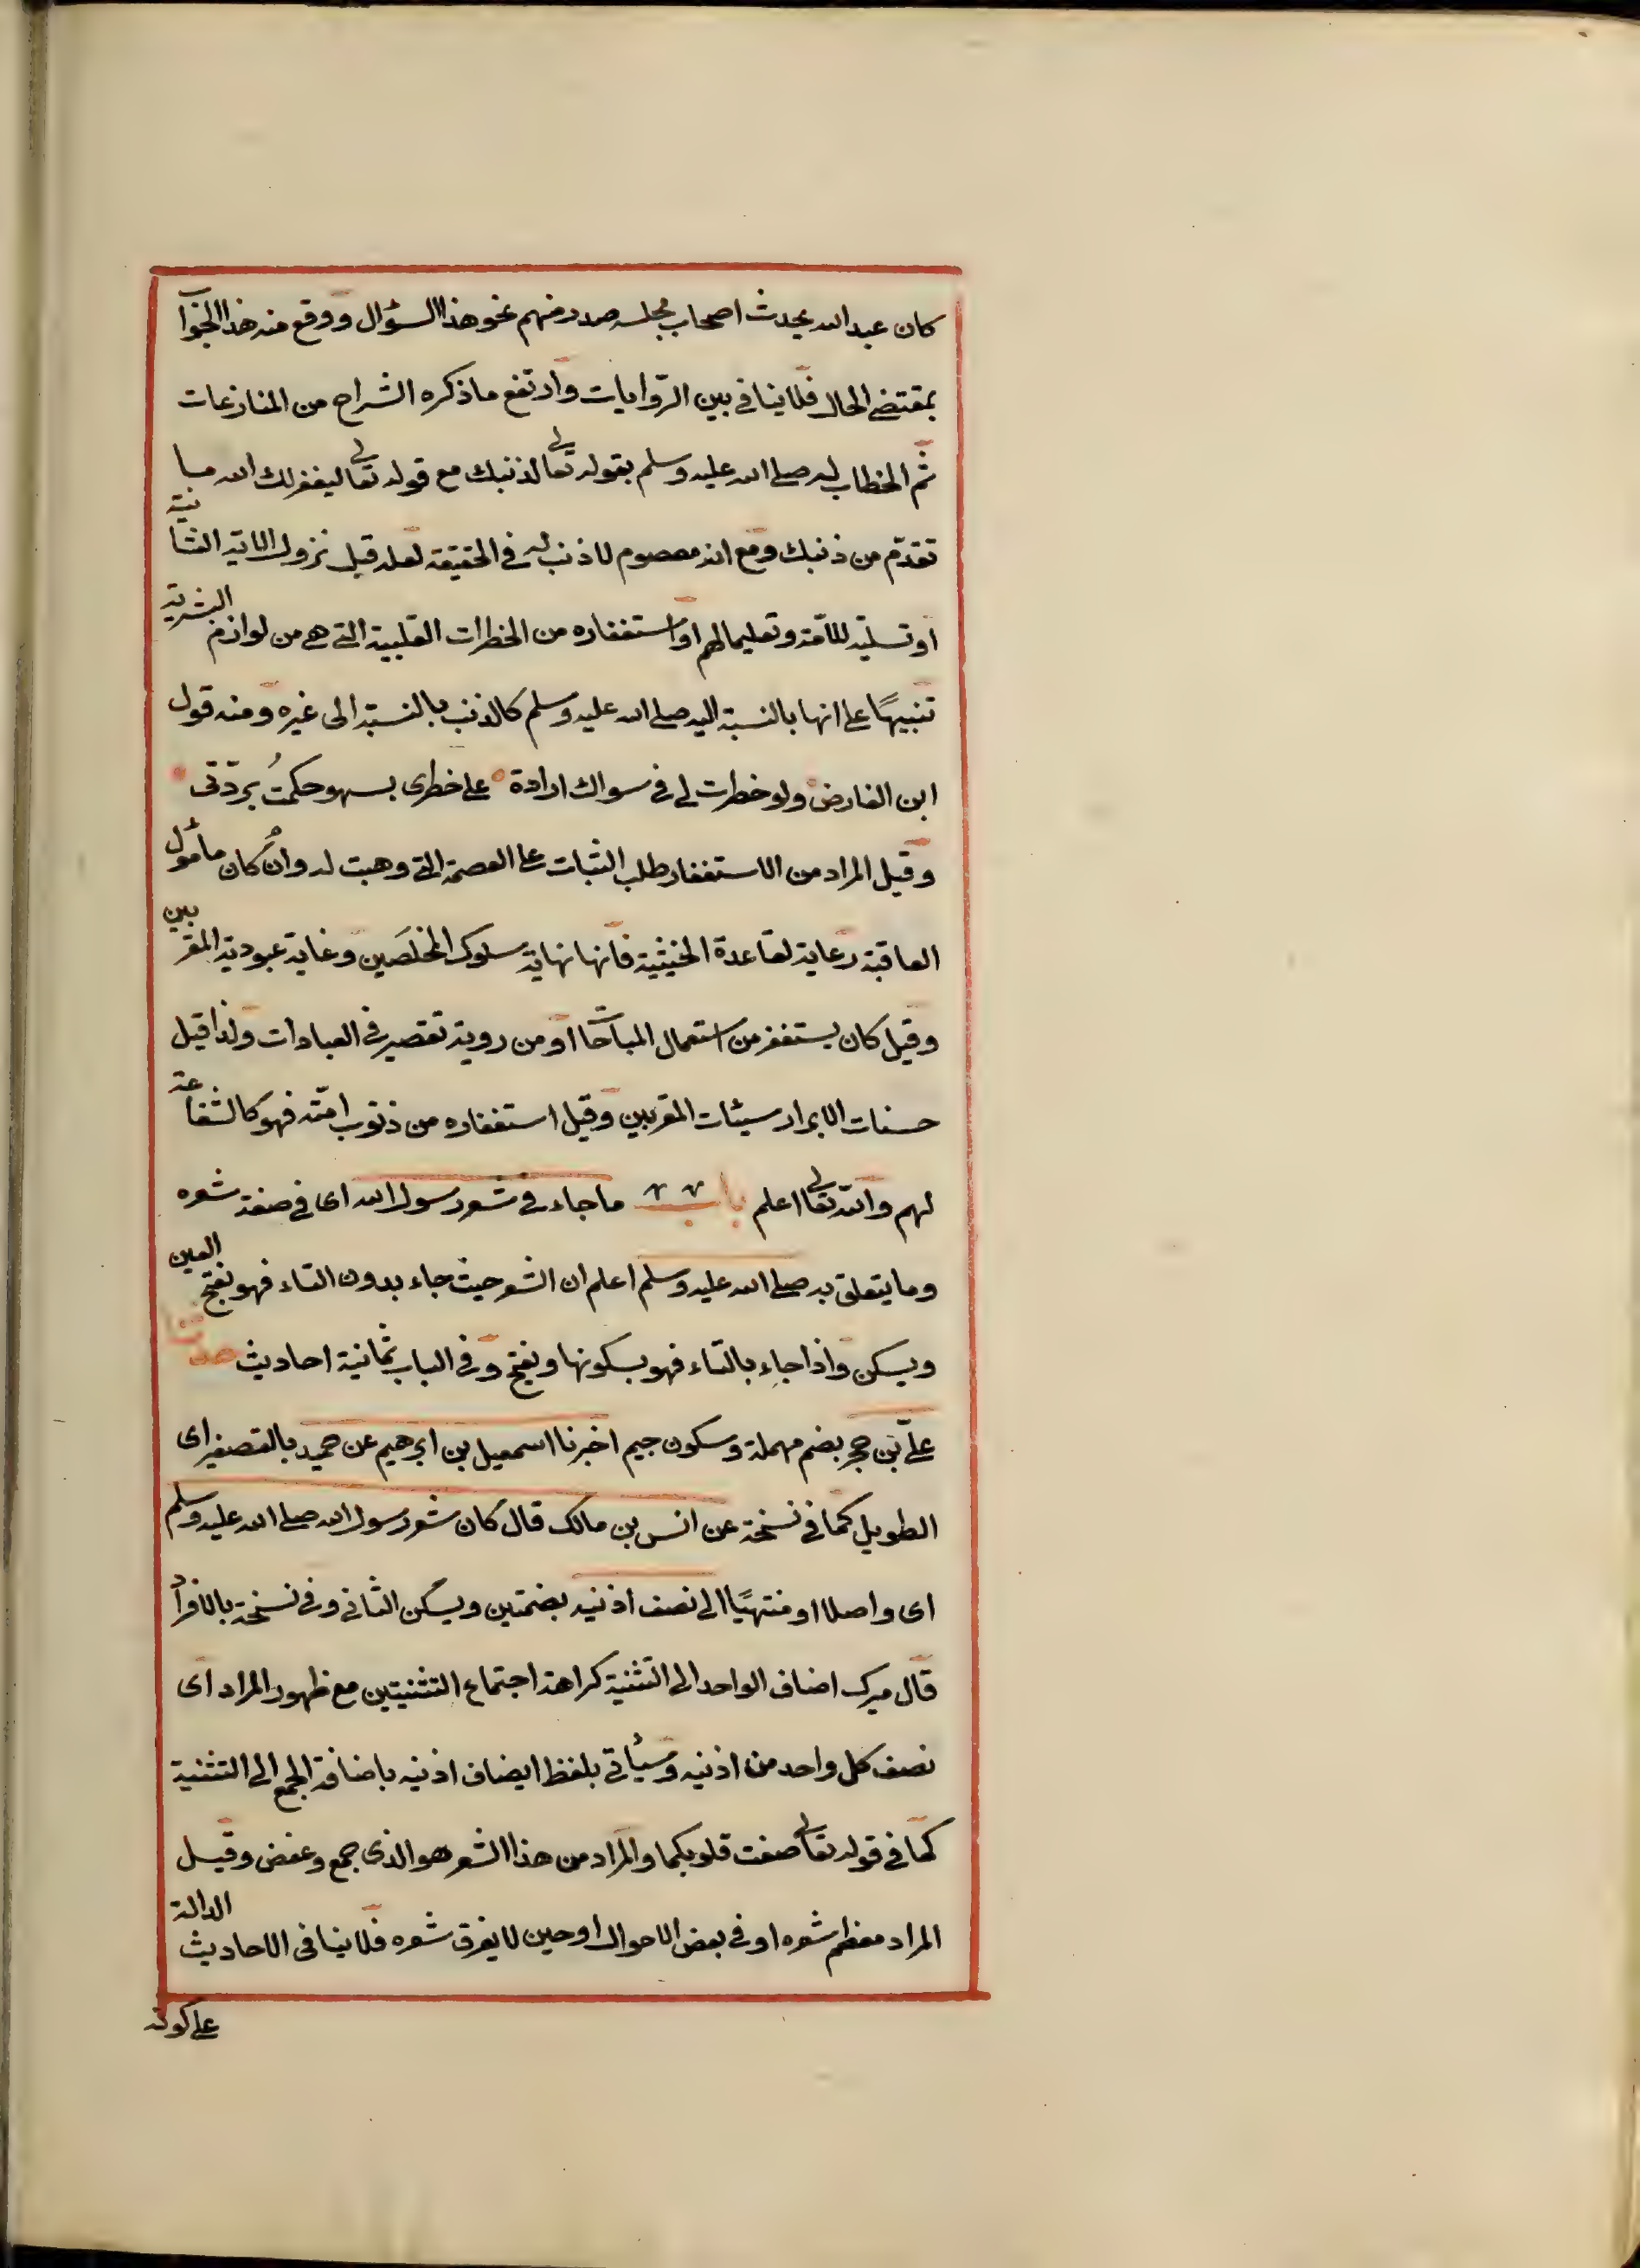 كان عبد الله يحدث اصحاب مجلسه صدر منهم نحو هذا السؤال ووقع منه هذا الجواب
بمقتضى الحال فلا ينافي بين الروايات وارتفع ما ذكره الشراح من المنازعات
ثم الخطاب له صلى الله عليه وسلم بقوله تعالى لذنبك مع قوله تعالى ليغفر لك الله ما
تقدم من ذنبك ومع انه معصوم لا ذنب له في الحقيقة لعله قبل نزول الاية الثانية
او تسلية للامة وتعليما لهم او استغفاره من الخطرات القلبية التي هي من لوازم البشرية
تنبيهًا على انها بالنسبة اليه صلى الله عليه وسلم كالذنب بالنسبة الى غيره ومنه قول
ابن الفارض ولو خطرت لي في سواك ارادة على خاطرى بسهو حكمتُ بردّتى
وقيل المراد من الاستغفار طلب الثبات على العصمة التي وهبت له وان كان مأمول
العاقبة رعاية لقاعدة الخشية فانها نهاية سلوك المخلَصين وغاية عبودية المقربين
وقيل كان يستغفر من استعمال المباحات او من روية تقصير في العبادات ولذا قيل
حسنات الابرار سيئات المقربين وقيل استغفاره من ذنوب امته فهو كالشفاعة
لهم والله تعالى اعلم باب ما جاء في شعر رسول الله اى في صفة شعره
وما يتعلق به صلى الله عليه وسلم اعلم ان الشعر حيث جاء بدون التاء فهو بفتح العين
ويسكن واذا جاء بالتاء فهو بسكونها وبفتح وفي الباب ثمانية احاديث حدثنا
علي بن حجر بضم مهملة وسكون جيم اخبرنا اسمعيل بن ابرهيم عن حميد بالتصغير اى
الطويل كما في نسخة عن انس بن مالك قال كان شعر رسول الله صلى الله عليه وسلم
اى واصلا او منتهيًا الى نصف اذنيه بضمتين ويسكن الثاني وفي نسخة بالافراد
قال ميرك اضاف الواحد الى التثنية كراهة اجتماع التثنيتين مع ظهور المراد اى
نصف كل واحد من اذنيه وسيأتي بلفظ ايضاف اذنيه باضافة الجمع الى التثنية
كما في قوله تعالى صغت قلوبكما والمراد من هذا الشعر هو الذى جمع وعقص وقيل
المراد معظم شعره او في بعض الاحوال او حين لا يفرق شعره فلا ينافى الاحاديث الدالة
على كونه